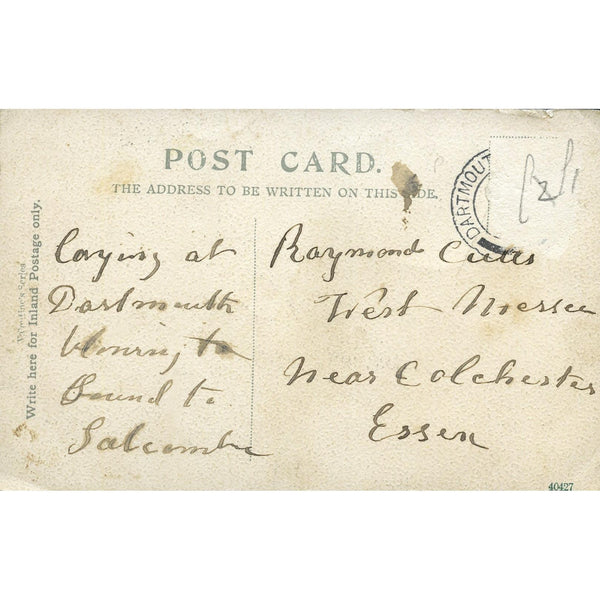 POST CARD.
THE ADDRESS TO BE WRITTEN ON THIS SIDE.
Valentine's Series
Write here for Inland Postage only.
DARTMOUT
Laying at
Dartmouth
to
Bound to
Salcombe
Raymond Cutts
West Mersea
Near Colchester
Essex
40427